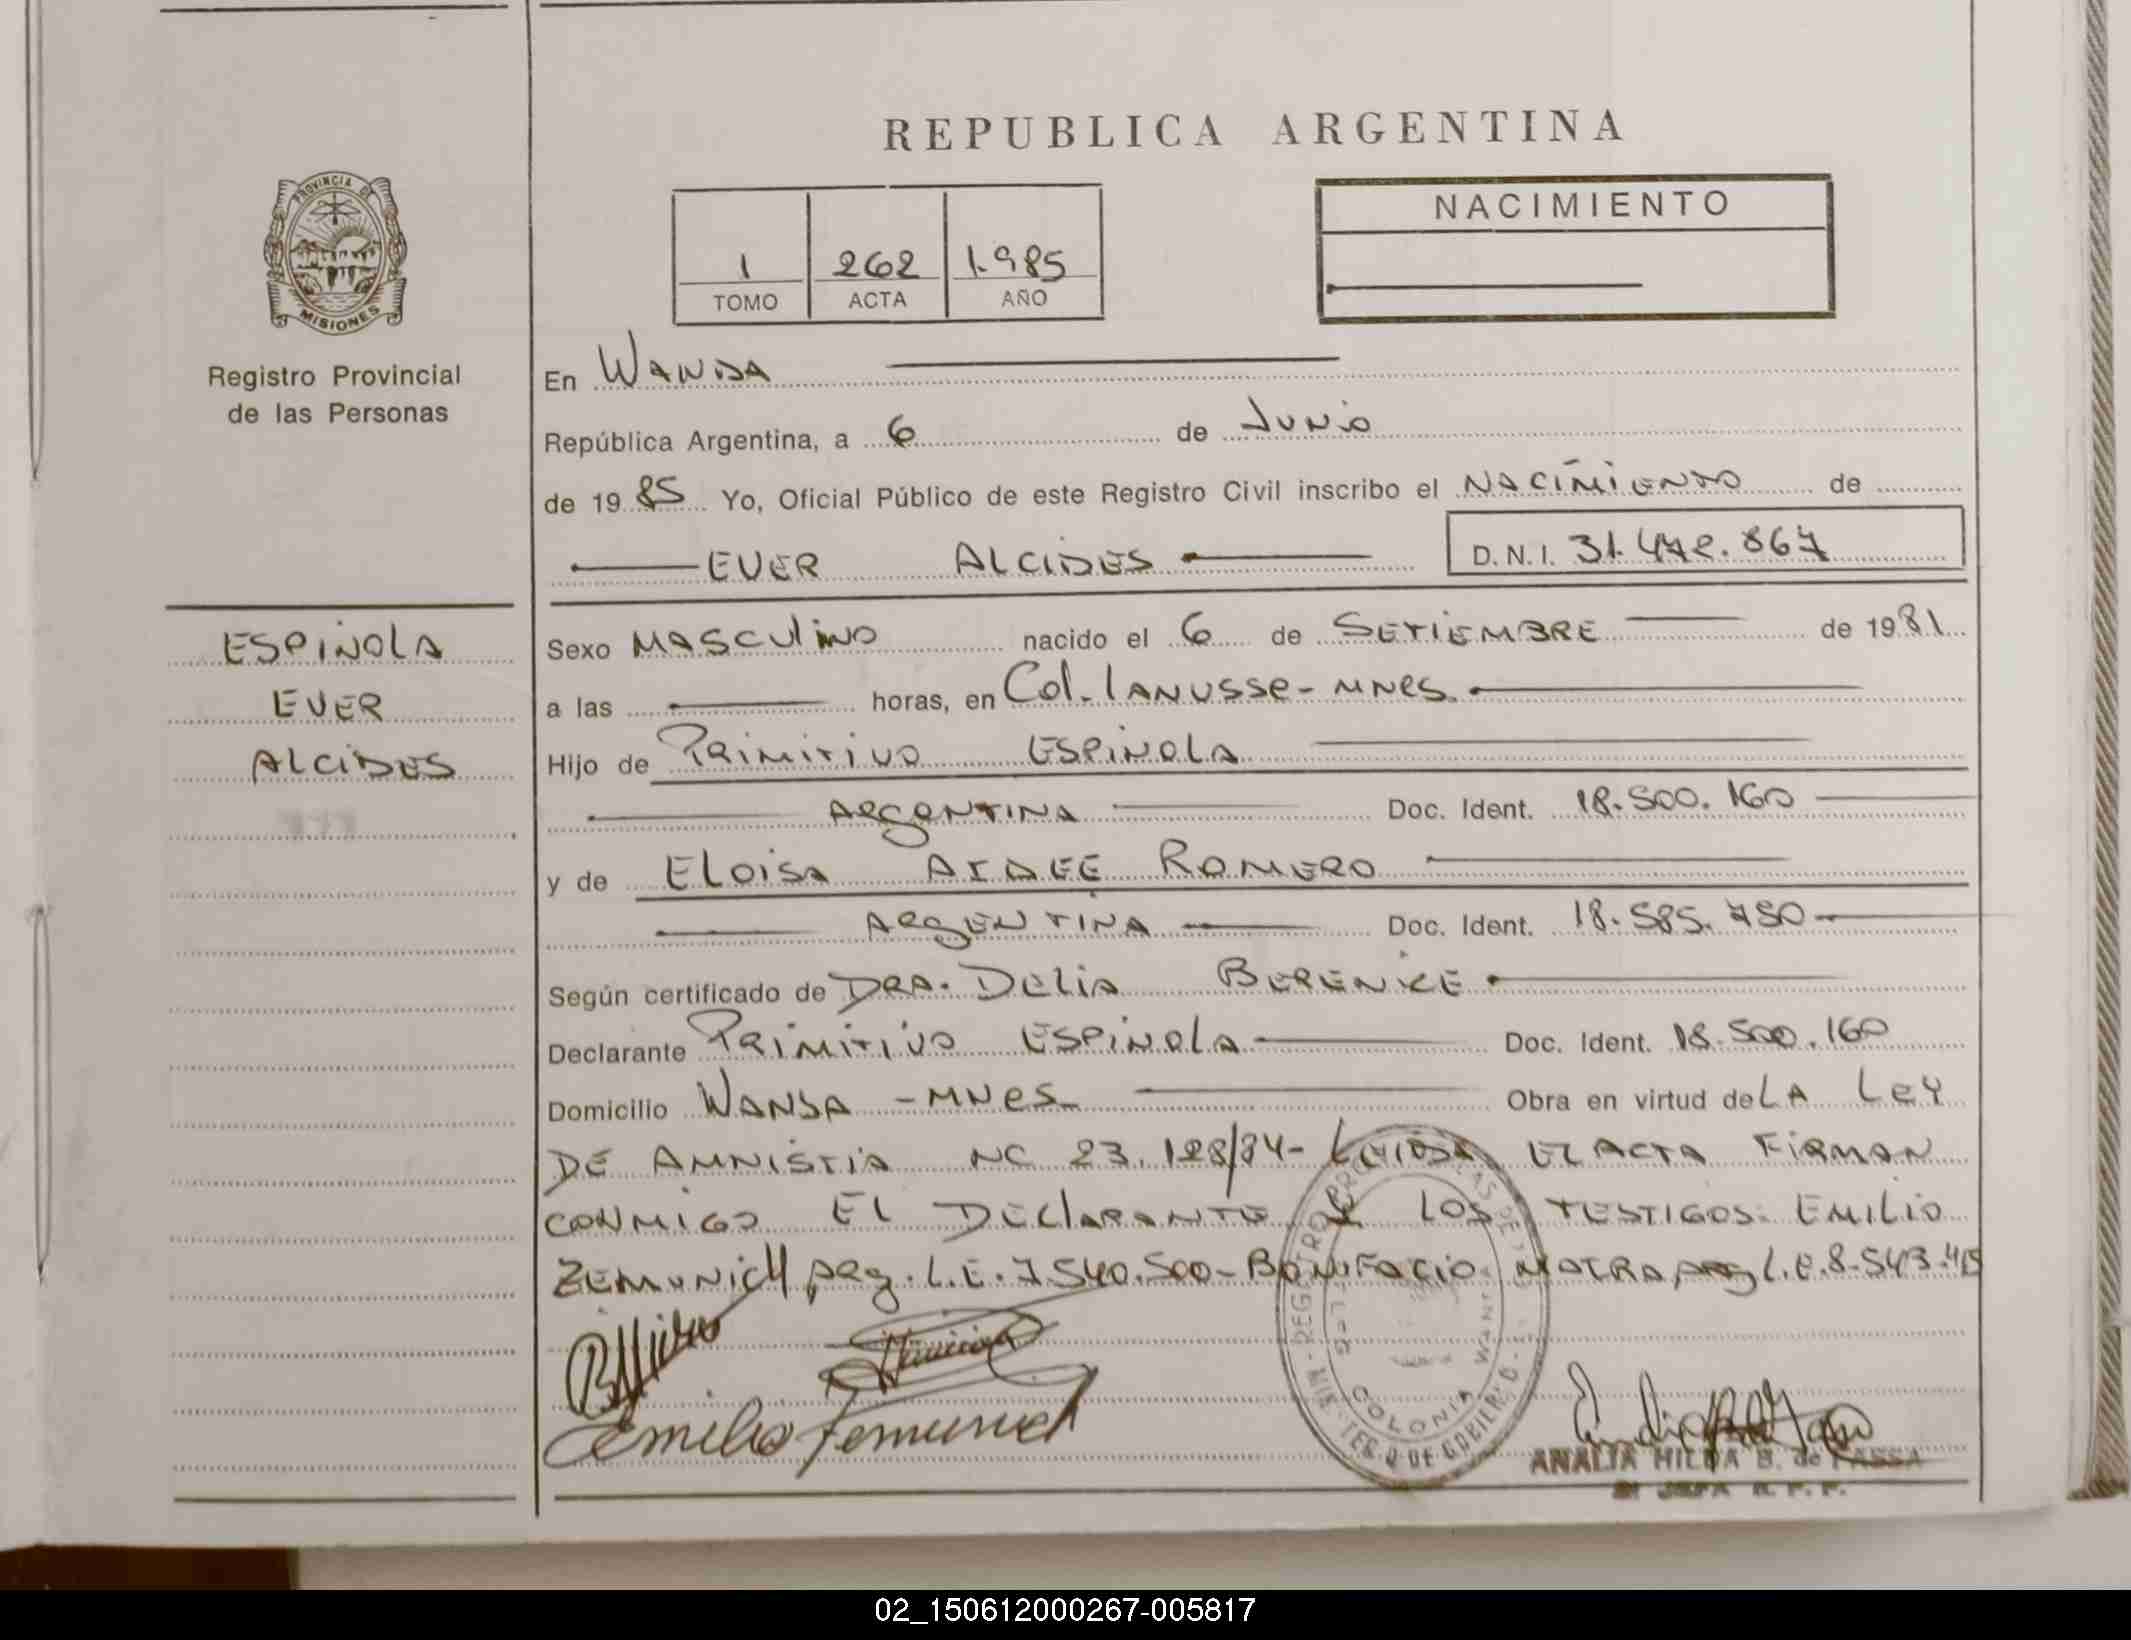 REPUBLICA ARGENTINA
PROVINCIA DE
MISIONES
Registro Provincial
de las Personas
1 262 1.985
TOMO ACTA AÑO
NACIMIENTO
En WANDA
República Argentina, a 6 de JUNIO
de 1985 Yo, Oficial Público de este Registro Civil inscribo el NACIMIENTO de
EVER ALCIDES D.N.I. 31.472.867
ESPINOLA
EVER
ALCIDES
Sexo MASCULINO nacido el 6 de SETIEMBRE de 1981
a las horas, en Col. LANUSSE - MNES.
Hijo de PRIMITIVO ESPINOLA
ARGENTINA Doc. Ident. 18.500.160
y de ELOISA AIDEE ROMERO
ARGENTINA Doc. Ident. 18.585.750
Según certificado de DRA. DELIA BERENICE
Declarante PRIMITIVO ESPINOLA Doc. Ident. 18.500.160
Domicilio WANDA - MNES Obra en virtud de LA LEY
DE AMNISTIA 23.128/84- LEIDA EL ACTA FIRMAN
CONMIGO EL DECLARANTE Y LOS TESTIGOS: EMILIO
ZEMUNICH arg. L.E. 7540.500- BONIFACIO L.E. 8.543.
Emilio Zemunich
COLONIA WANDA
ANALIA HILDA B. de FASSA
JEFA R. P. P.
02_150612000267-005817